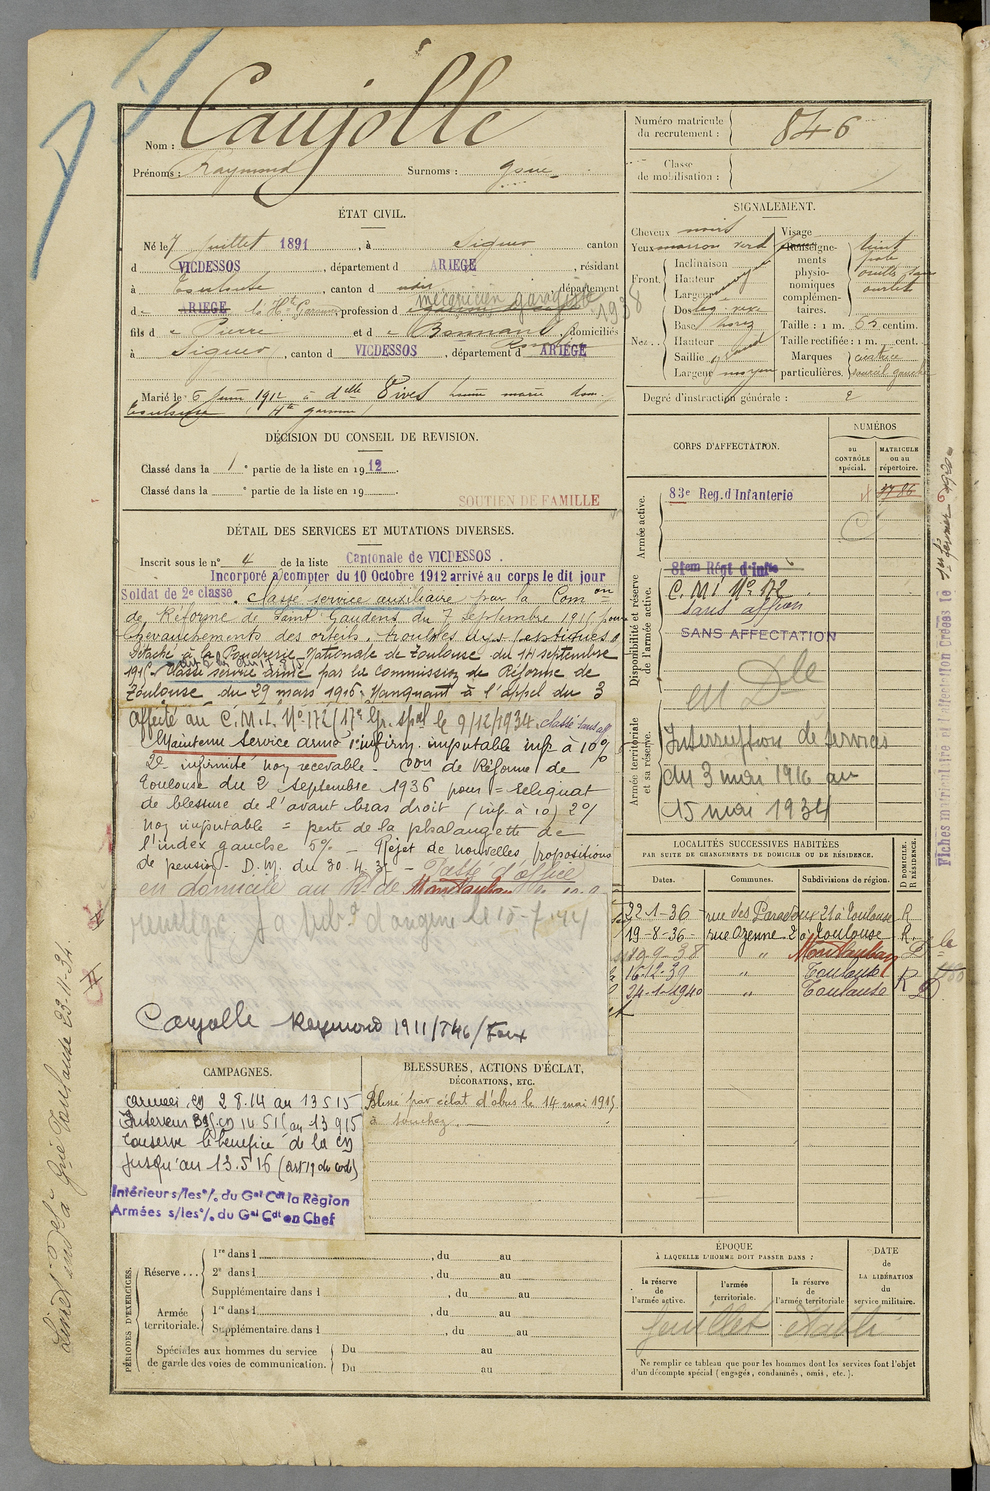 Nom : Caujolle
Prénoms : Raymond Surnoms :
Numéro matricule du recrutement : 846
Classe de mobilisation :
ÉTAT CIVIL.
Né le 7 Juillet 1891, à Siguer canton
d VICDESSOS, département d ARIEGE, résidant
à Toulouse, canton d dit, département
d ARIEGE la Hte Garonne, profession d mécanicien garagiste 1938
fils de Pierre et de Bonnans domiciliés
à Siguer, canton d VICDESSOS, département d ARIÈGE
Marié le 6 Juin 1912 à dlle Vives
Toulouse (Hte Garonne)
DÉCISION DU CONSEIL DE REVISION.
Classé dans la 1e partie de la liste en 1912.
Classé dans la e partie de la liste en 19 .
SOUTIEN DE FAMILLE
DÉTAIL DES SERVICES ET MUTATIONS DIVERSES.
Inscrit sous le n° 4 de la liste Cantonale de VICDESSOS.
Incorporé à compter du 10 Octobre 1912 arrivé au corps le dit jour
Soldat de 2e classe. classé service auxiliaire par la Comon
de Réforme de Saint Gaudens du 7 septembre 1915 pour
chevauchements des orteils.
Détaché à la Poudrerie Nationale de Toulouse du 14 septembre
1915. Classé service armé par la Commission de Réforme de
Toulouse du 29 mars 1916. Manquant à l'appel du 3
Affecté au C.M.I. N° 172 (17e Gr. spal le 9/12/1934. classé sans aff
Maintenu Service armé 1° infirm. imputable inf. à 10%
2e infirmité non recevable. Con de Réforme de
Toulouse du 2 septembre 1936 pour = reliquat
de blessure de l'avant bras droit (inf. à 10) 2°/
non imputable = perte de la phalangette de
l'index gauche 5% - Rejet de nouvelles propositions
de pension. D.M. du 30.4.37 - Passé d'office
en domicile au Bu de Montauban
renvoyé à la sub.on d'origine le 15-7-41
Caujolle Raymond 1911/846/Foix
CAMPAGNES.
Intérieur s/les °/. du Gal Cdt la Région
Armées s/les °/. du Gal Cdt en Chef
BLESSURES, ACTIONS D'ÉCLAT,
DÉCORATIONS, ETC.
Blessé par éclat d'obus le 14 mai 1915
à Souchez.
PÉRIODES D'EXERCICES.
Réserve... 1re dans l , du au
2e dans l , du au
Supplémentaire dans l , du au
Armée territoriale. 1re dans l , du au
Supplémentaire dans l , du au
Spéciales aux hommes du service
de garde des voies de communication. Du au
Du au
SIGNALEMENT.
Cheveux noirs
Yeux marron verd
Front. Inclinaison
Hauteur
Largeur
Nez... Dos
Base horiz
Hauteur
Saillie
Largeur moyen
Visage
Renseignements physionomiques complémentaires.
teint
Taille : 1 m. 62 centim.
Taille rectifiée : 1 m. cent.
Marques particulières. cicatrice
sourcil gauche
Degré d'instruction générale : 2
CORPS D'AFFECTATION.
NUMÉROS
au CONTRÔLE spécial.
MATRICULE ou au répertoire.
Armée active.
83e Reg. d'Infanterie
Disponibilité et réserve de l'armée active.
C.M.I N° 172
Sans affon
SANS AFFECTATION
en Dle
Armée territoriale et sa réserve.
Interruption de services
du 3 mai 1916 au
15 mai 1934
LOCALITÉS SUCCESSIVES HABITÉES
PAR SUITE DE CHANGEMENTS DE DOMICILE OU DE RÉSIDENCE.
Dates. Communes. Subdivisions de région. D DOMICILE. R RÉSIDENCE.
22-1-36 rue des Paradoux 21 à Toulouse R
19-8-36 rue Ozenne 2 à Toulouse R.
19-9-38 " Montauban D
16-12-39 " Toulouse R
24-1-1940 " Toulouse D
ÉPOQUE
À LAQUELLE L'HOMME DOIT PASSER DANS :
la réserve de l'armée active.
l'armée territoriale.
la réserve de l'armée territoriale
DATE de LA LIBÉRATION du service militaire.
Ne remplir ce tableau que pour les hommes dont les services font l'objet
d'un décompte spécial (engagés, condamnés, omis, etc.).